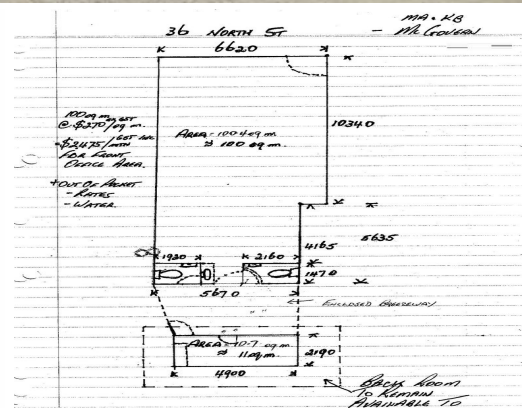 36 NORTH ST
MA·KB
- Mc GOVERN
6620
10340
100 sq m. ex GST
@ $270/sq m.
= $2475/MTH GST INC
FOR FRONT
OFFICE AREA.
+ OUT OF POCKET
- RATES
- WATER.
AREA = 100.4 sq m.
≈ 100 sq m.
5635
4165
1920
2160
1470
5670
ENCLOSED BREEZEWAY
AREA = 10.7 sq m.
≈ 11 sq m.
2190
4900
BACK ROOM
TO REMAIN
AVAILABLE TO